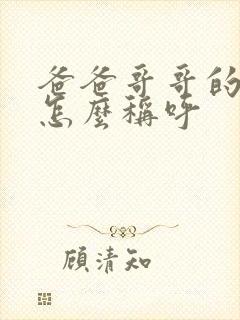 爸爸哥哥的
怎麼稱呼
顧清知